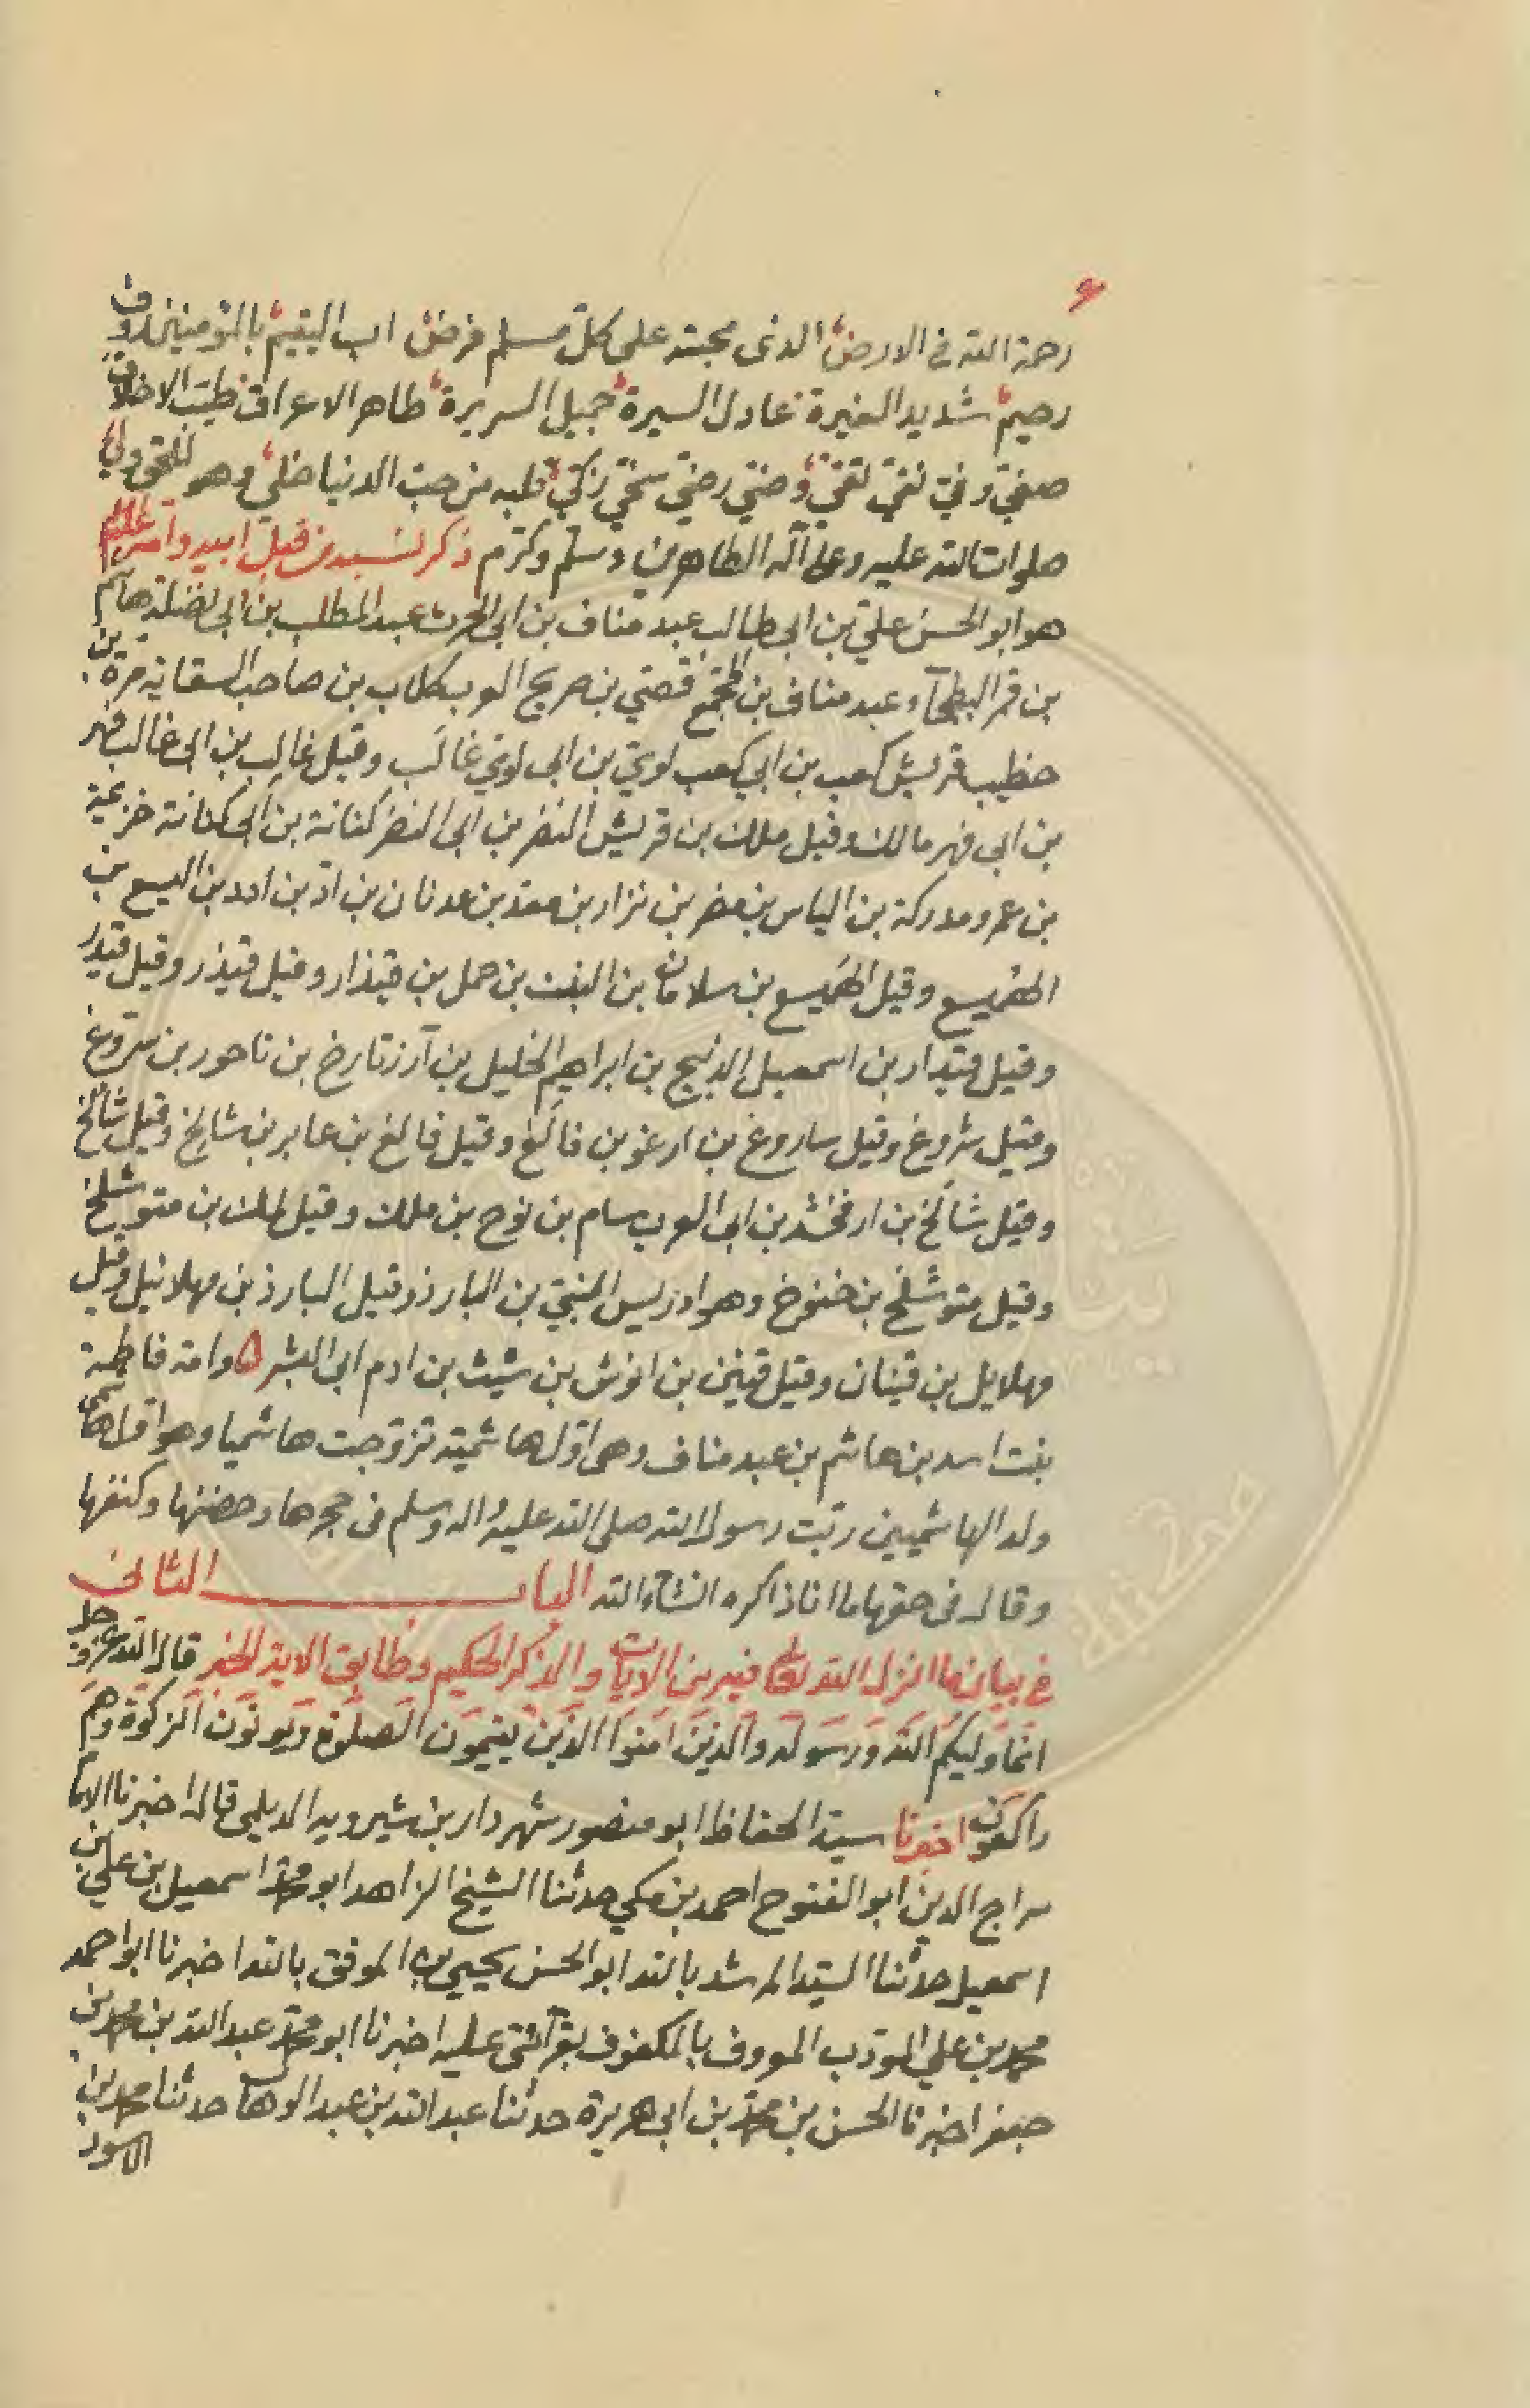 ۶
رحمة الله في الارض الذى محبته على كل مسلم فرض اب اليتيم بالمؤمنين رؤف
رحيم شديد الغيرة عادل السيرة جميل السريرة طاهر الاعراق طيب الاخلاق
صفي وفي نقي تقي وصي رضي سخي زكي قلبه من حب الدنيا خلي وهو للحق ولي
صلوات الله عليه وعلى آله الطاهرين وسلم وكرم ذكر نسبه من قبل ابيه وامه عليه السلام
هو ابو الحسن علي بن ابى طالب عبد مناف بن ابى الحرث عبد المطلب بن ابى نضلة هاشم
بن قمر البطحآء عبد مناف بن المجمع قصي بن صريح العرب كلاب بن صاحب السقاية مرة بن
خطيب قريش كعب بن ابي كعب لوي بن ابى لوي غالب وقيل غالب بن ابى غالب فهر
بن ابى فهر مالك وقيل ملك بن قريش النضر بن ابى النضر كنانة بن ابى كنانة خزيمة
بن عمرو مدركة بن الياس بن مضر بن نزار بن معد بن عدنان بن اد بن ادد بن اليسع بن
الهميسع وقيل الهميسع بن سلامان بن النبت بن حمل بن قيذار وقيل قيذر وقيل قيدر
وقيل قيدار بن اسمعيل الذبيح بن ابراهيم الخليل بن آزر تارخ بن ناحور بن سروغ
وقيل شروغ وقيل ساروغ بن ارغو بن فالغ وقيل فالغ بن عابر بن شالخ وقيل شالخ
وقيل شالخ بن ارفخشد بن ابى العرب سام بن نوح بن ملك وقيل لمك بن متوشلخ
وقيل متوشلخ بن خنوخ وهو ادريس النبي بن البارذ وقيل اليارذ بن مهلائيل وقيل
مهلايل بن قينان وقيل قينن بن انوش بن شيث بن ادم ابى البشر ۵ وامه فاطمة
بنت اسد بن هاشم بن عبد مناف وهى اول هاشمية تزوجت هاشميا وهو اول هاشمى
ولد الهاشميين ربت رسول الله صلى الله عليه واله وسلم فى حجرها وحضنها وكنفها
وقال فى حقها ما انا ذاكره انشآء الله الباب الثانى
فى بيان ما انزل الله تعالى فيه من الايات والذكر الحكيم وطابق الاية الخبر قال الله عز وجل
انما وليكم الله ورسوله والذين امنوا الذين يقيمون الصلوة ويؤتون الزكوة وهم
راكعون اخبرنا سيد الحفاظ ابو منصور شهردار بن شيرويه الديلمى قال اخبرنا الامام
سراج الدين ابو الفتوح احمد بن مكي حدثنا الشيخ الزاهد ابو محمد اسمعيل بن علي بن
اسمعيل حدثنا السيد المرشد بالله ابو الحسن يحيى بن الموفق بالله اخبرنا ابو احمد
محمد بن علي المؤدب المعروف بالمكفوف بقرآئتى عليه اخبرنا ابو محمد عبد الله بن محمد بن
جعفر اخبرنا الحسن بن محمد بن ابى هريرة حدثنا عبد الله بن عبد الوهاب حدثنا محمد بن
الاسود